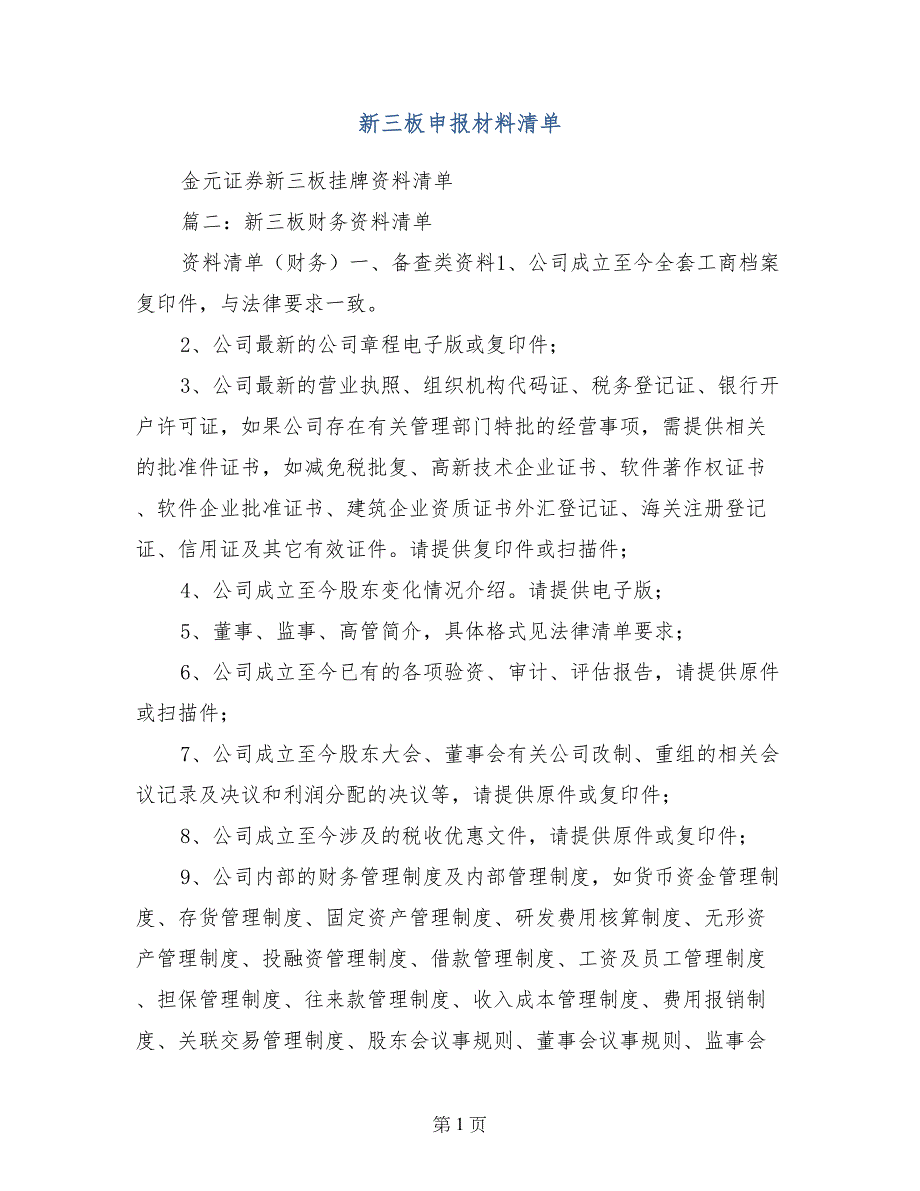 新三板申报材料清单
金元证券新三板挂牌资料清单
篇二：新三板财务资料清单
资料清单（财务）一、备查类资料1、公司成立至今全套工商档案
复印件，与法律要求一致。
2、公司最新的公司章程电子版或复印件；
3、公司最新的营业执照、组织机构代码证、税务登记证、银行开
户许可证，如果公司存在有关管理部门特批的经营事项，需提供相关
的批准件证书，如减免税批复、高新技术企业证书、软件著作权证书
、软件企业批准证书、建筑企业资质证书外汇登记证、海关注册登记
证、信用证及其它有效证件。请提供复印件或扫描件；
4、公司成立至今股东变化情况介绍。请提供电子版；
5、董事、监事、高管简介，具体格式见法律清单要求；
6、公司成立至今已有的各项验资、审计、评估报告，请提供原件
或扫描件；
7、公司成立至今股东大会、董事会有关公司改制、重组的相关会
议记录及决议和利润分配的决议等，请提供原件或复印件；
8、公司成立至今涉及的税收优惠文件，请提供原件或复印件；
9、公司内部的财务管理制度及内部管理制度，如货币资金管理制
度、存货管理制度、固定资产管理制度、研发费用核算制度、无形资
产管理制度、投融资管理制度、借款管理制度、工资及员工管理制度
、担保管理制度、往来款管理制度、收入成本管理制度、费用报销制
度、关联交易管理制度、股东会议事规则、董事会议事规则、监事会
第 1 页